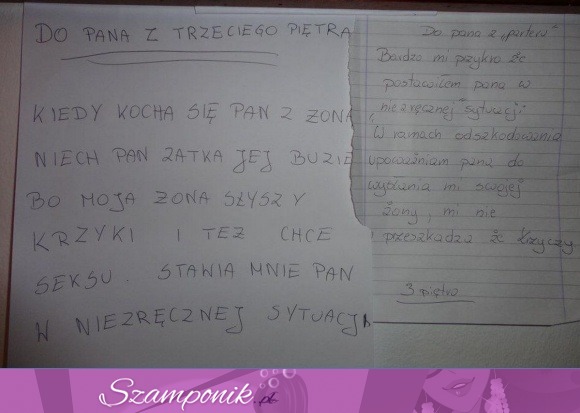 DO PANA Z TRZECIEGO PIĘTRA
KIEDY KOCHA SIĘ PAN Z ŻONĄ
NIECH PAN ZATKA JEJ BUZIE
BO MOJA ŻONA SŁYSZY
KRZYKI I TEZ CHCE
SEKSU. STAWIA MNIE PAN
W NIEZRĘCZNEJ SYTUACJI
Do pana z "parteru"
Bardzo mi przykro że
postawiłem pana w
"niezręcznej" sytuacji
W ramach odszkodowania
upoważniam pana do
wysłania mi swojej
żony, mi nie
przeszkadza że krzyczy
3 piętro
Szamponik.pl